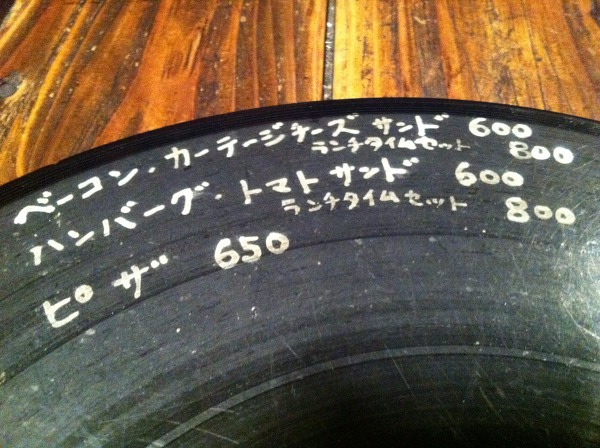 ベーコン・カーテージチーズ サンド 600
ランチタイムセット 800
ハンバーグ・トマトサンド 600
ランチタイムセット 800
ピザ 650